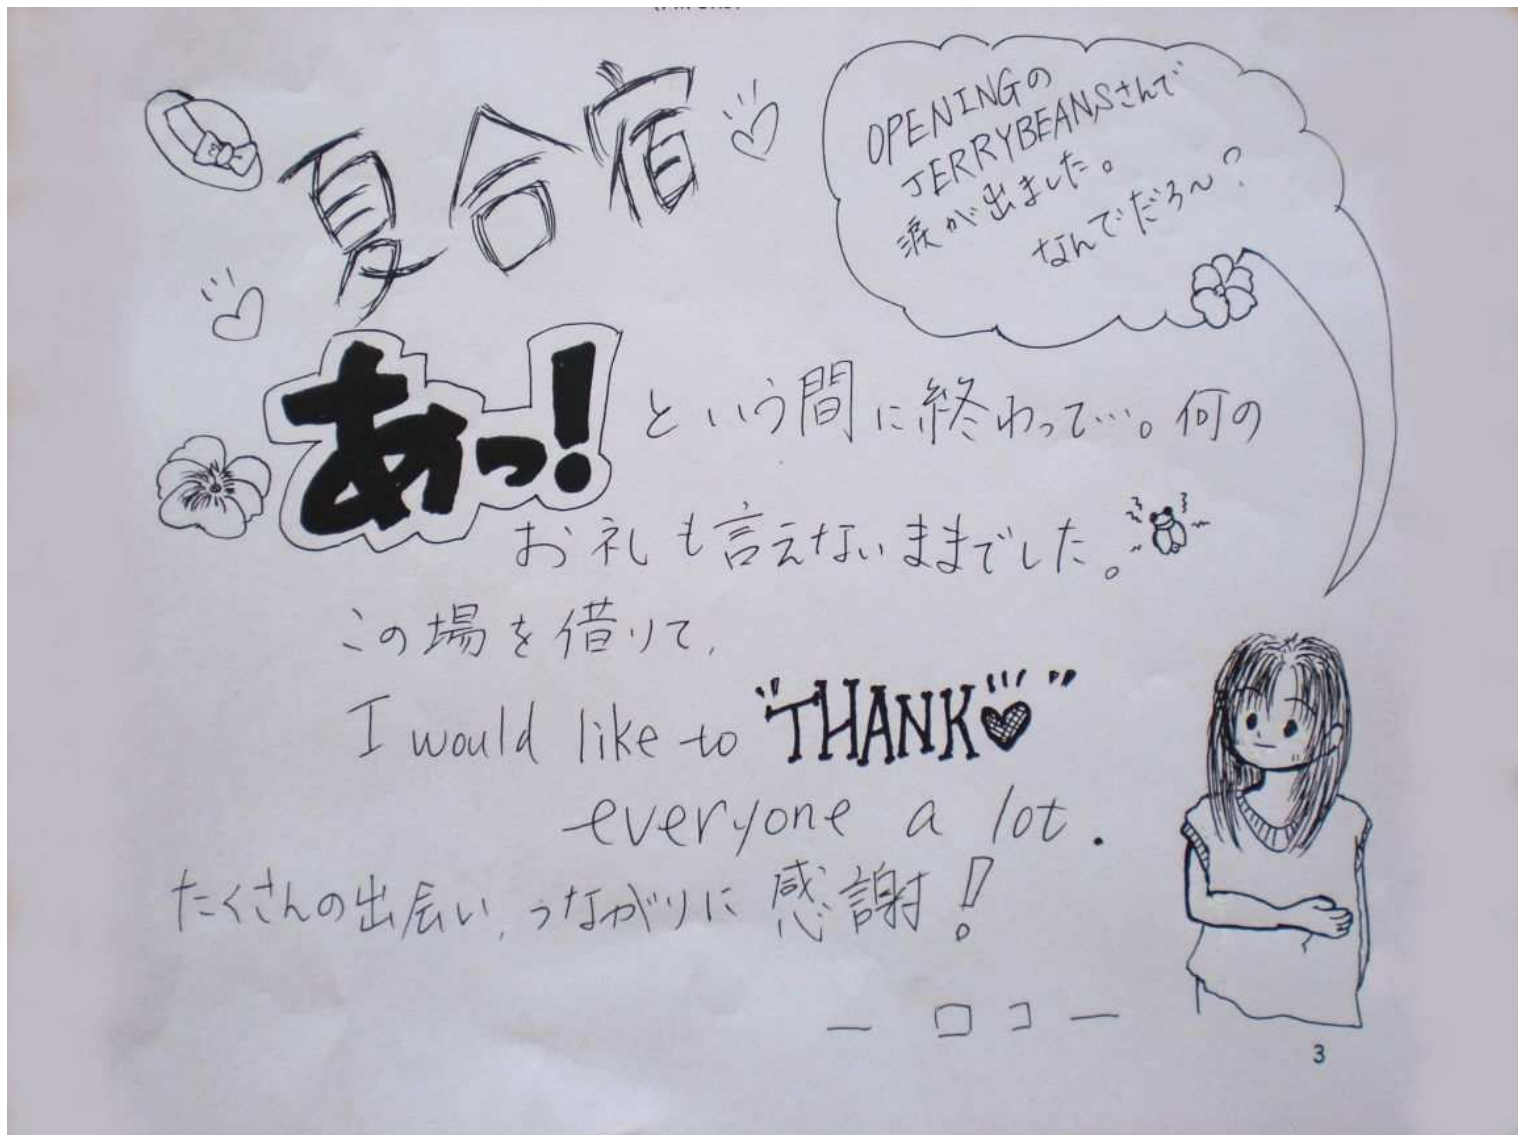 夏合宿
OPENINGの
JERRYBEANSさんで
涙が出ました。
なんでだろ〜?
あっ!という間に終わって…。何の
お礼も言えないままでした。
この場を借りて、
I would like to "THANK♥"
everyone a lot.
たくさんの出会い、つながりに感謝!
— ロコ —
3